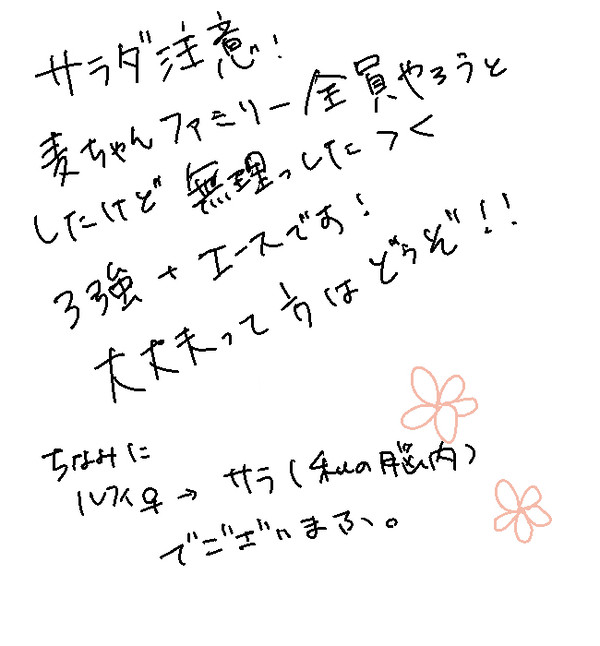 サラダ注意!
麦ちゃんファミリー全員やろうと
したけど無理っしたつく
3強+エースです!
大丈夫って方はどうぞ!!
ちなみに
ルフィ♀→サラ(私の脳内)
でございまふ。